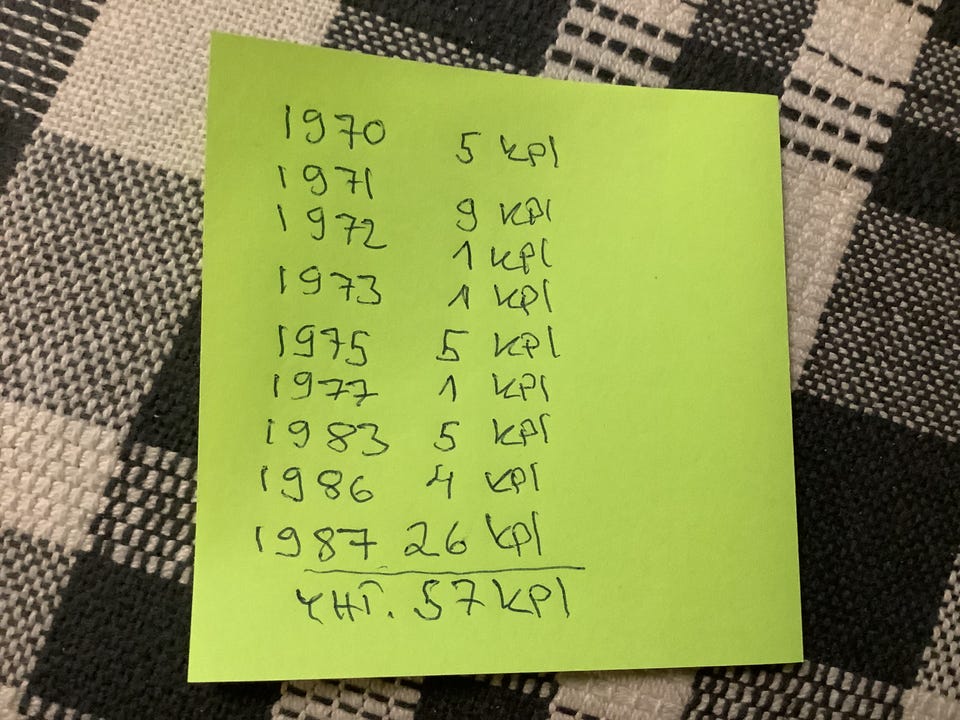 1970 5 kpl
1971 9 kpl
1972 1 kpl
1973 1 kpl
1975 5 kpl
1977 1 kpl
1983 5 kpl
1986 4 kpl
1987 26 kpl
YHT. 57 kpl